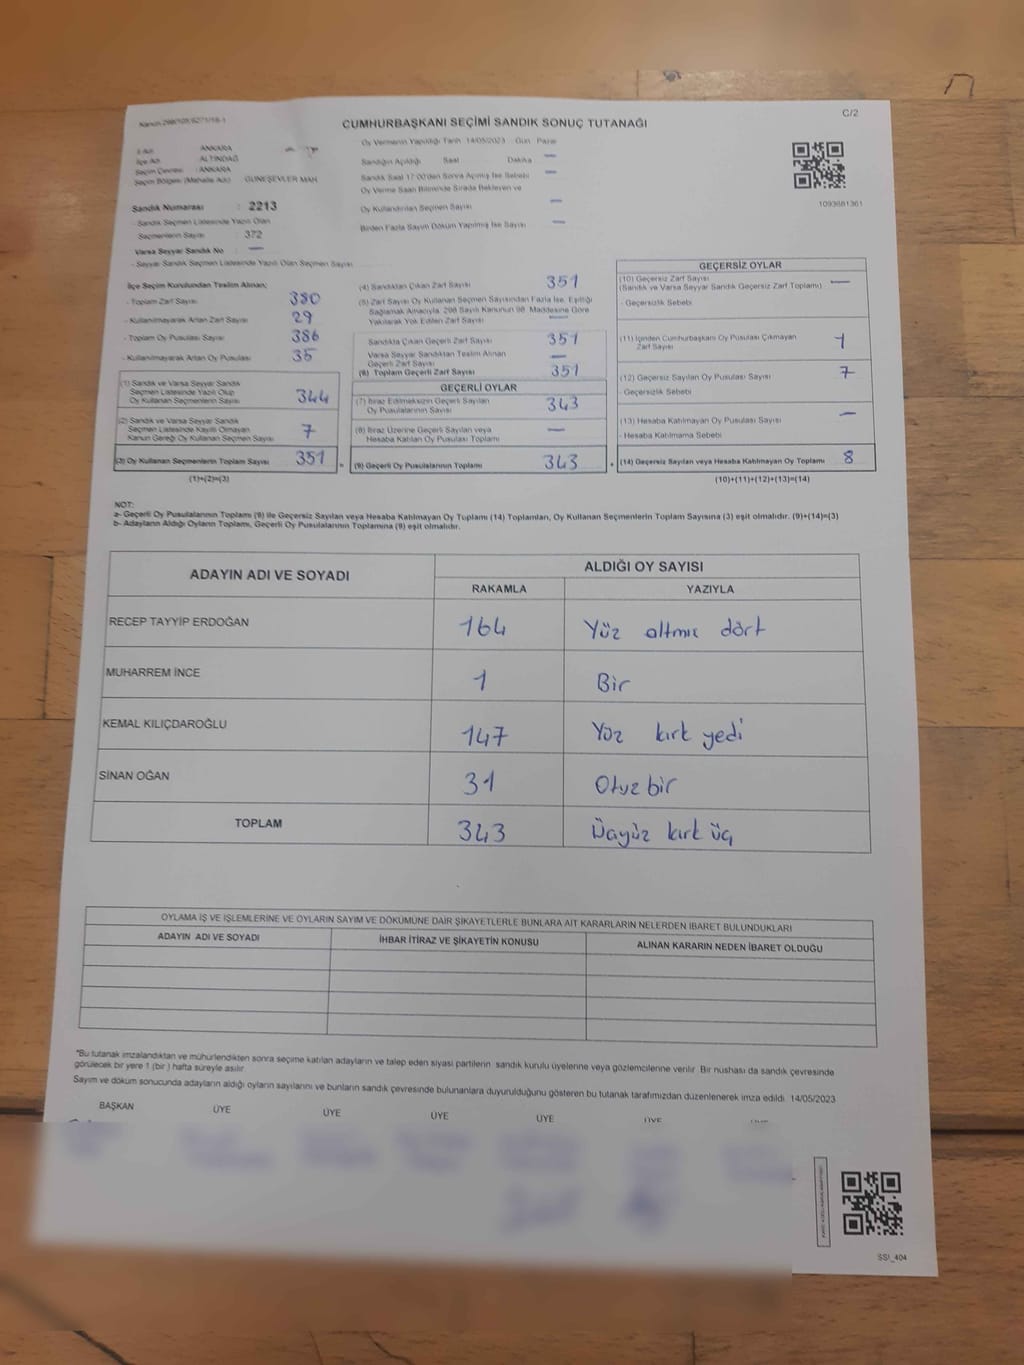 Kanun 298/105/6271/16-1
C/2
CUMHURBAŞKANI SEÇİMİ SANDIK SONUÇ TUTANAĞI
İl Adı : ANKARA
İlçe Adı : ALTINDAĞ
Seçim Çevresi : ANKARA
Seçim Bölgesi (Mahalle Adı) : GÜNEŞEVLER MAH
Sandık Numarası : 2213
- Sandık Seçmen Listesinde Yazılı Olan
Seçmenlerin Sayısı 372
Varsa Seyyar Sandık No : —
- Seyyar Sandık Seçmen Listesinde Yazılı Olan Seçmen Sayısı
Oy Vermenin Yapıldığı Tarih 14/05/2023 Gün Pazar
Sandığın Açıldığı Saat Dakika —
Sandık Saat 17:00'den Sonra Açılmış İse Sebebi —
Oy Verme Saati Bitiminde Sırada Bekleyen ve
Oy Kullandırılan Seçmen Sayısı —
Birden Fazla Sayım Döküm Yapılmış İse Sayısı —
1093681361
İlçe Seçim Kurulundan Teslim Alınan;
- Toplam Zarf Sayısı 380
- Kullanılmayarak Artan Zarf Sayısı 29
- Toplam Oy Pusulası Sayısı 386
- Kullanılmayarak Artan Oy Pusulası 35
(1) Sandık ve Varsa Seyyar Sandık
Seçmen Listesinde Yazılı Olup
Oy Kullanan Seçmenlerin Sayısı 344
(2) Sandık ve Varsa Seyyar Sandık
Seçmen Listesinde Kayıtlı Olmayan
Kanun Gereği Oy Kullanan Seçmen Sayısı 7
(3) Oy Kullanan Seçmenlerin Toplam Sayısı 351 =
(1)+(2)=(3)
(4) Sandıktan Çıkan Zarf Sayısı 351
(5) Zarf Sayısı Oy Kullanan Seçmen Sayısından Fazla İse, Eşitliği
Sağlamak Amacıyla, 298 Sayılı Kanunun 98. Maddesine Göre
Yakılarak Yok Edilen Zarf Sayısı —
Sandıkta Çıkan Geçerli Zarf Sayısı 351
Varsa Seyyar Sandıktan Teslim Alınan
Geçerli Zarf Sayısı —
(6) Toplam Geçerli Zarf Sayısı 351
GEÇERLİ OYLAR
(7) İtiraz Edilmeksizin Geçerli Sayılan
Oy Pusulalarının Sayısı 343
(8) İtiraz Üzerine Geçerli Sayılan veya
Hesaba Katılan Oy Pusulası Toplamı —
(9) Geçerli Oy Pusulalarının Toplamı 343 +
GEÇERSİZ OYLAR
(10) Geçersiz Zarf Sayısı
(Sandık ve Varsa Seyyar Sandık Geçersiz Zarf Toplamı) —
- Geçersizlik Sebebi
(11) İçinden Cumhurbaşkanı Oy Pusulası Çıkmayan
Zarf Sayısı 1
(12) Geçersiz Sayılan Oy Pusulası Sayısı 7
- Geçersizlik Sebebi
(13) Hesaba Katılmayan Oy Pusulası Sayısı —
- Hesaba Katılmama Sebebi
(14) Geçersiz Sayılan veya Hesaba Katılmayan Oy Toplamı 8
(10)+(11)+(12)+(13)=(14)
NOT:
a- Geçerli Oy Pusulalarının Toplamı (9) ile Geçersiz Sayılan veya Hesaba Katılmayan Oy Tuplamı (14) Toplamları, Oy Kullanan Seçmenlerin Toplam Sayısına (3) eşit olmalıdır. (9)+(14)=(3)
b- Adayların Aldığı Oyların Toplamı, Geçerli Oy Pusulalarının Toplamına (9) eşit olmalıdır.
ADAYIN ADI VE SOYADI
ALDIĞI OY SAYISI
RAKAMLA YAZIYLA
RECEP TAYYİP ERDOĞAN 164 Yüz altmış dört
MUHARREM İNCE 1 Bir
KEMAL KILIÇDAROĞLU 147 Yüz kırk yedi
SİNAN OĞAN 31 Otuz bir
TOPLAM 343 Üçyüz kırk üç
OYLAMA İŞ VE İŞLEMLERİNE VE OYLARIN SAYIM VE DÖKÜMÜNE DAİR ŞİKAYETLERLE BUNLARA AİT KARARLARIN NELERDEN İBARET BULUNDUKLARI
ADAYIN ADI VE SOYADI İHBAR İTİRAZ VE ŞİKAYETİN KONUSU ALINAN KARARIN NEDEN İBARET OLDUĞU
"Bu tutanak imzalandıktan ve mühürlendikten sonra seçime katılan adayların ve talep eden siyasi partilerin sandık kurulu üyelerine veya gözlemcilerine verilir. Bir nushası da sandık çevresinde
görülecek bir yere 1 (bir) hafta süreyle asılır
Sayım ve döküm sonucunda adayların aldığı oyların sayılarını ve bunların sandık çevresinde bulunanlara duyurulduğunu gösteren bu tutanak tarafımızdan düzenlenerek imza edildi. 14/05/2023
BAŞKAN ÜYE ÜYE ÜYE ÜYE ÜYE
SSİ_404